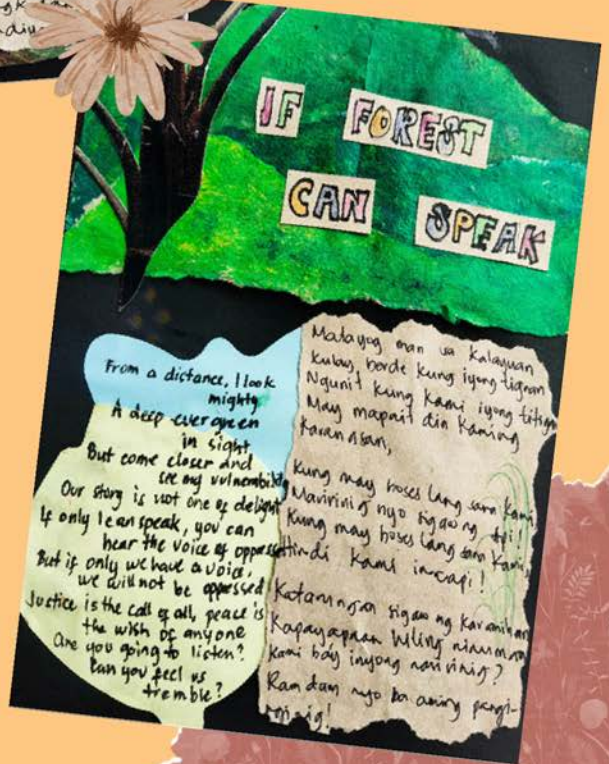 IF FOREST
CAN SPEAK
From a distance, I look
mighty
A deep evergreen
in sight
But come closer and
see my vulnerability
Our story is not one of delight
If only I can speak, you can
hear the voice of oppressed
But if only we have a voice,
we will not be oppressed
Justice is the call of all, peace is
the wish of anyone
Are you going to listen?
Can you feel us
tremble?
Matayog man sa kalayuan
Kulay, berde kung iyong tignan
Ngunit kung kami iyong titigan
May mapait din kaming
karanasan,
Kung may boses lang sana kami,
Maririnig nyo sigaw ng api!
Kung may boses lang sana kami,
Hindi kami inaapi!
Katarungan sigaw ng karamihan
Kapayapaan hiling ninuman
Kami bay inyong naririnig?
Ramdam nyo ba aming pangi-
nginig!